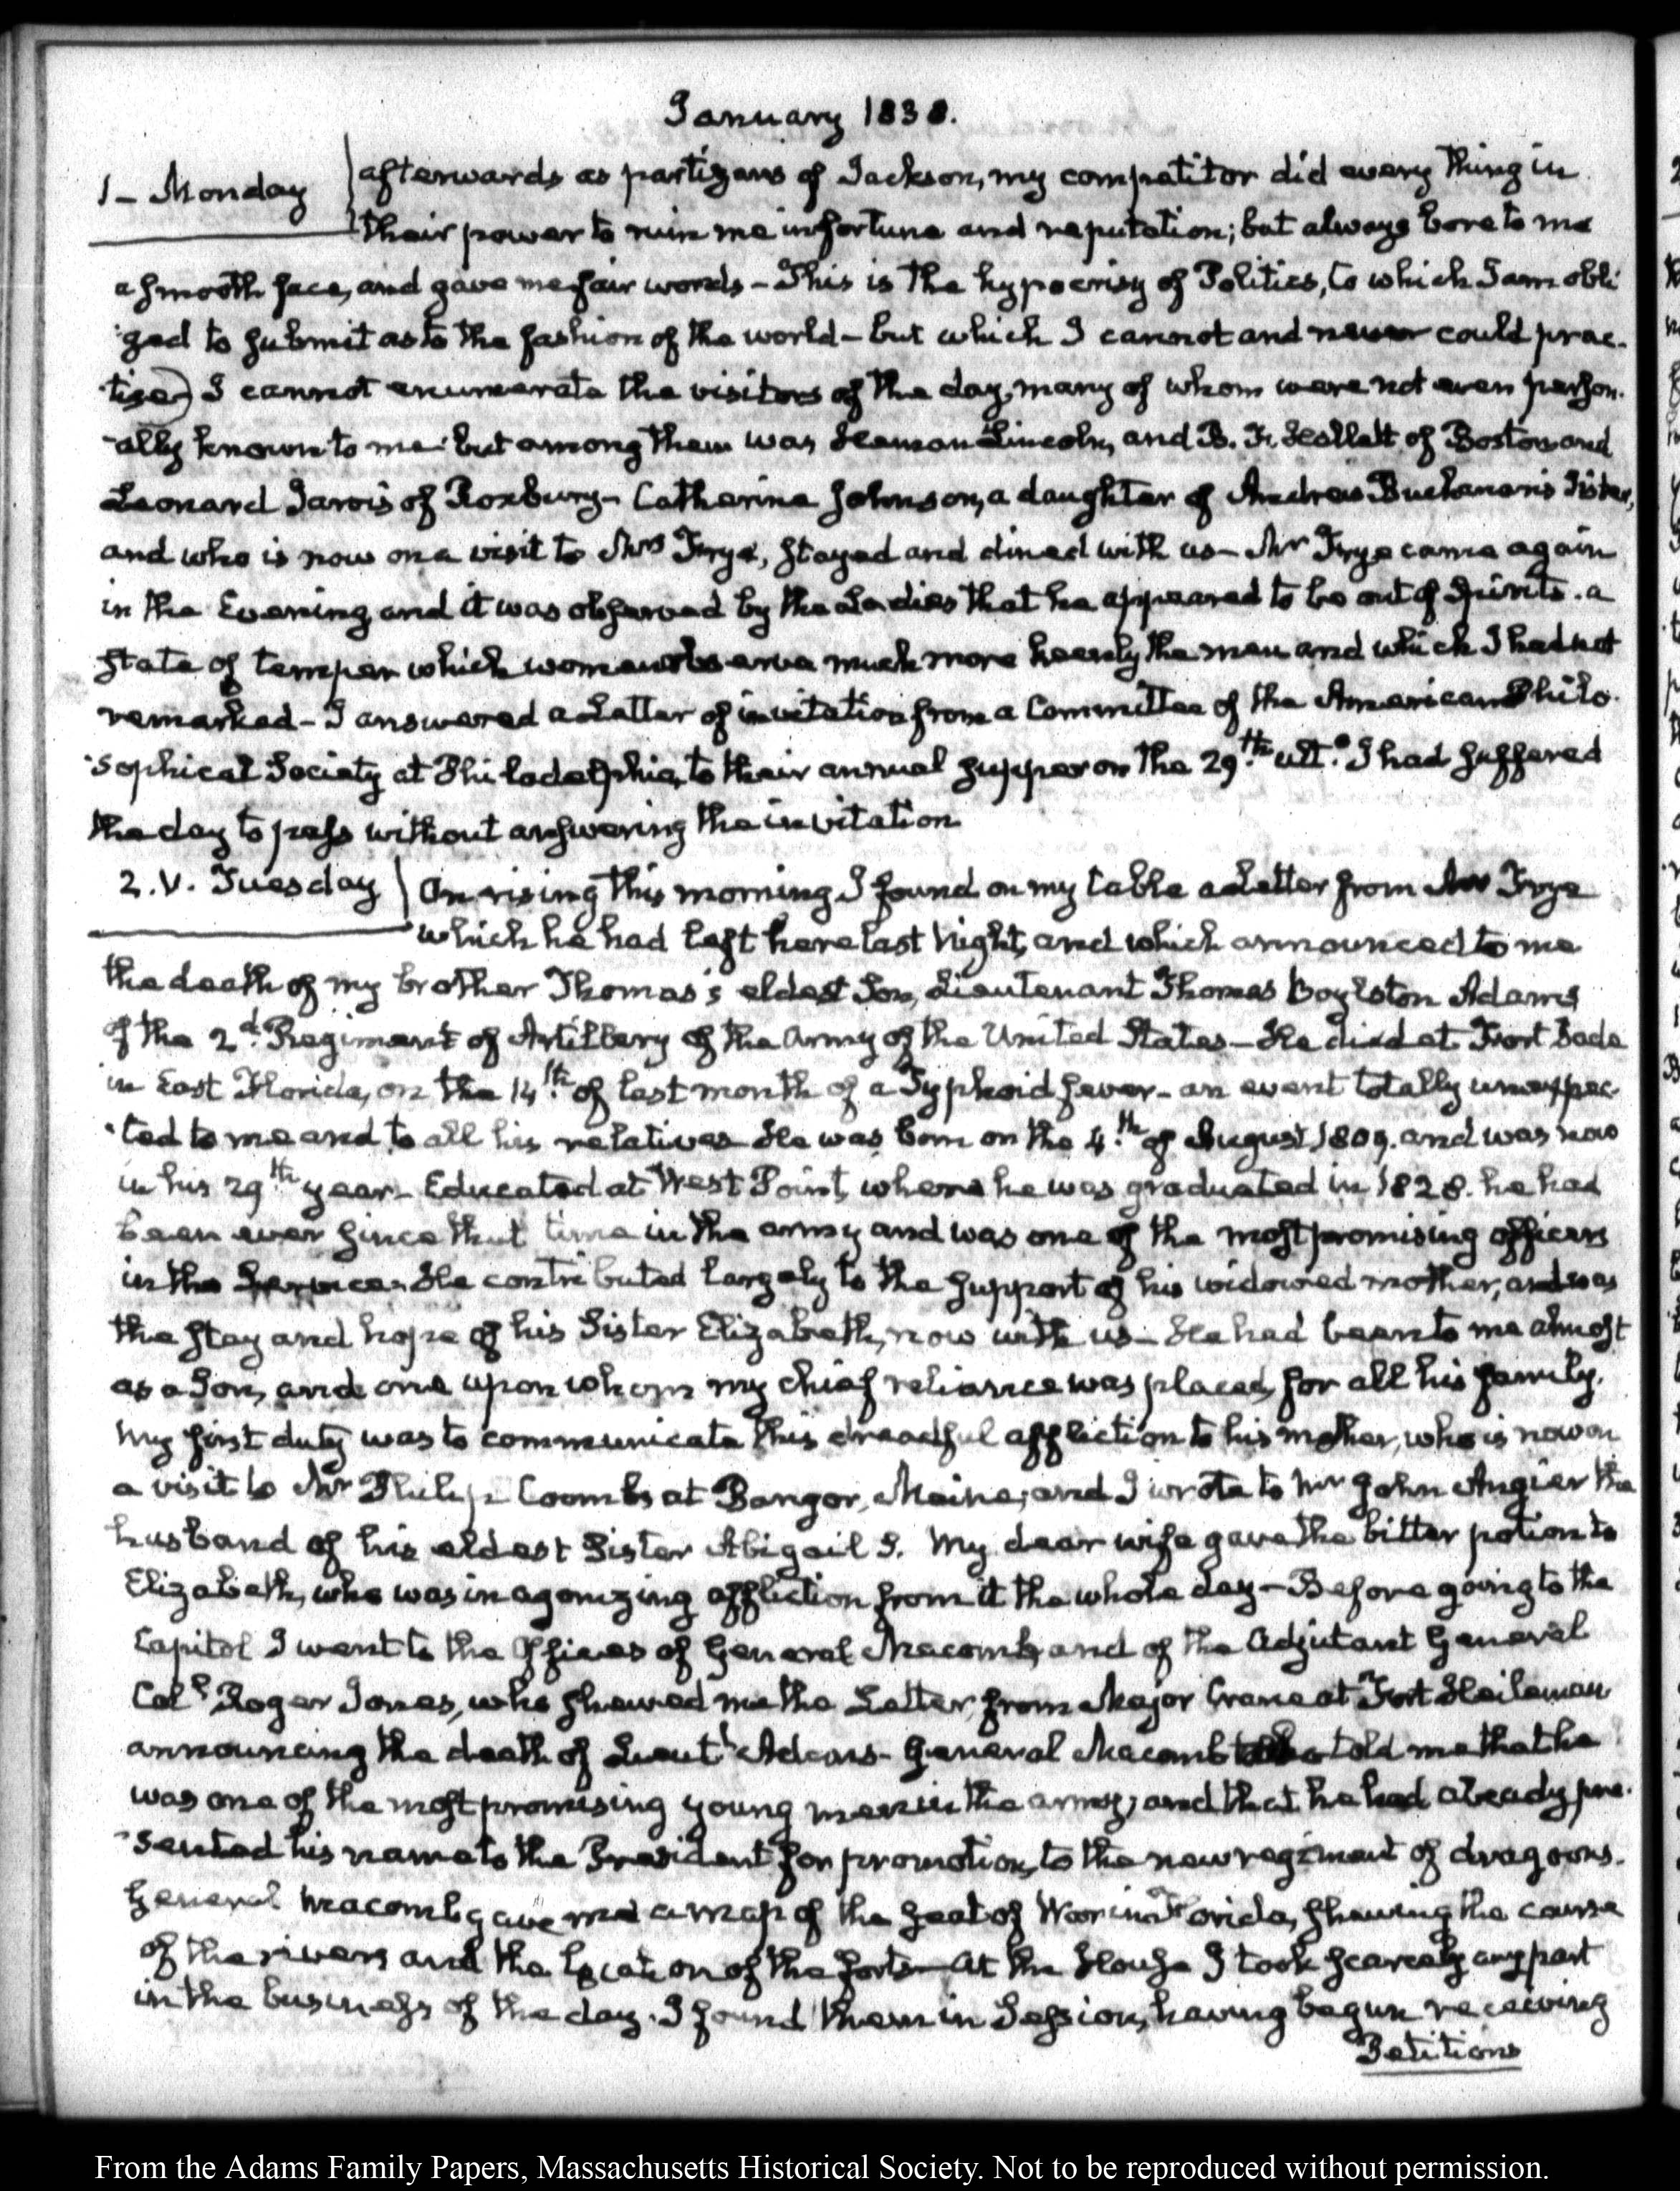 January 1838.
1 - Monday
afterwards as partizans of Jackson, my competitor did every thing in
their power to ruin me in fortune and reputation; but always bore to me
a smooth face, and gave me fair words - This is the hypocrisy of Politics, to which I am obli
ged to submit as to the fashion of the world - but which I cannot and never could prac-
tise) I cannot enumerate the visitors of the day, many of whom were not even person-
ally known to me but among them was Heman Lincoln, and B. F. Hallett of Boston and
Leonard Jarvis of Roxbury - Catherine Johnson, a daughter of Andrew Buchanan's Sister,
and who is now on a visit to Mrs Frye, stayed and dined with us - Mr Frye came again
in the Evening and it was observed by the Ladies that he appeared to be out of Spirits. a
state of temper which women observe much more keenly the men and which I had not
remarked - I answered a Letter of invitation from a Committee of the American Philo-
sophical Society at Philadelphia, to their annual supper on the 29.th ult.o I had suffered
the day to pass without answering the invitation
2. V. Tuesday
On rising this morning I found on my table a Letter from Mr Frye
which he had left here last Night, and which announced to me
the death of my brother Thomas's eldest Son, Lieutenant Thomas Boylston Adams
of the 2.d Regiment of Artillery of the Army of the United States - He died at Fort Dade
in East Florida, on the 14.th of last month of a Typhoid fever - an event totally unexpec-
ted to me and to all his relatives He was born on the 4.th of August 1809. and was now
in his 29.th year - Educated at West Point, where he was graduated in 1828. he had
been ever since that time in the army and was one of the most promising officers
in the Service. He contributed largely to the support of his widowed mother, and was
the stay and hope of his Sister Elizabeth, now with us - He had been to me almost
as a Son, and one upon whom my chief reliance was placed, for all his family.
My first duty was to communicate this dreadful affliction to his mother, who is now on
a visit to Mr Philip Coombs at Bangor, Maine, and I wrote to Mr John Angier the
husband of his eldest Sister Abigail S. My dear wife gave the bitter potion to
Elizabeth, who was in agonizing affliction from it the whole day - Before going to the
Capitol I went to the Offices of General Macomb, and of the Adjutant General
Col.l Roger Jones, who shewed me the Letter from Major Crane at Fort Heileman
announcing the death of Lieut.t Adams - General Macomb told me that he
was one of the most promising young men in the army, and that he had already pre-
sented his name to the President for promotion, to the new regiment of dragoons.
General Macomb gave me a map of the Seat of War in Florida, shewing the course
of the rivers and the location of the forts - At the House I took scarcely any part
in the business of the day. I found them in Session, having begun receiving
Petitions
From the Adams Family Papers, Massachusetts Historical Society. Not to be reproduced without permission.